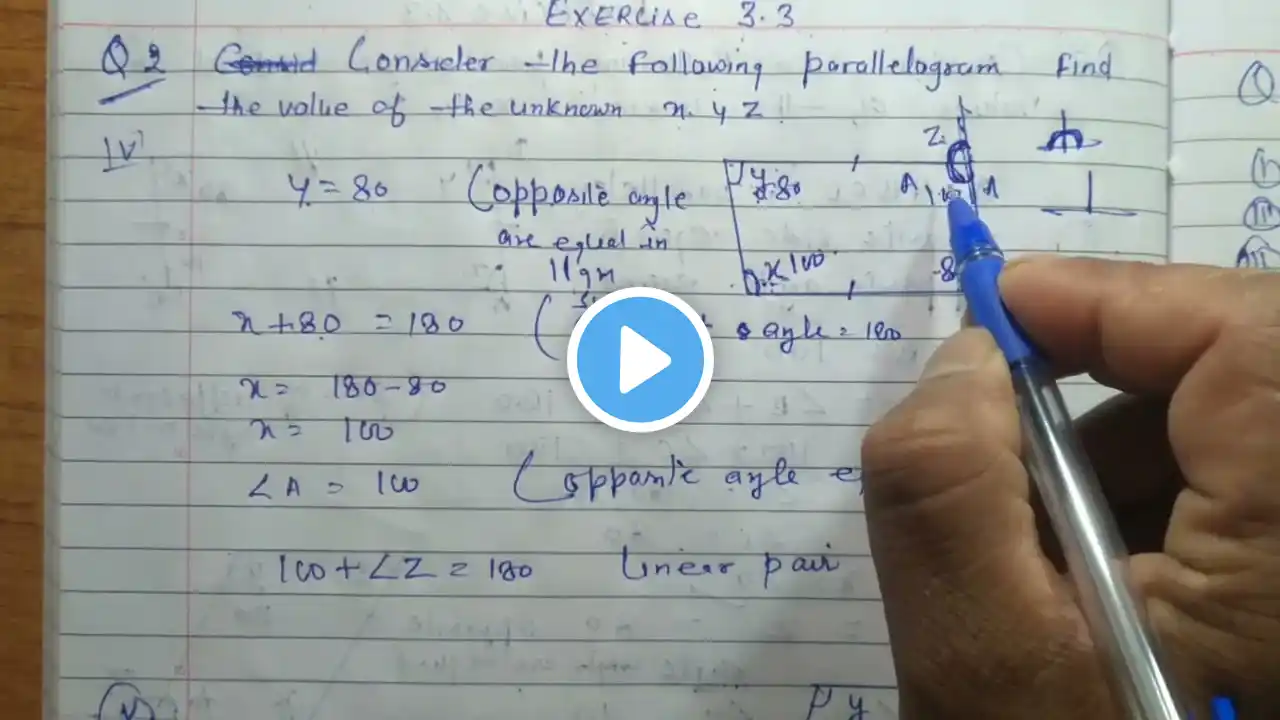 EXERCISE 3.3
Q 2 Consider the following parallelogram Find
the value of the unknown x. y z.
IV)
y = 80 (opposite angle
are equal in
11gm
x+80 = 180 ( angle = 180
x = 180-80
x = 100
∠A = 100 (opposite angle
100+∠Z = 180 Linear pair
Z
y
80
A
x 100
V
P y